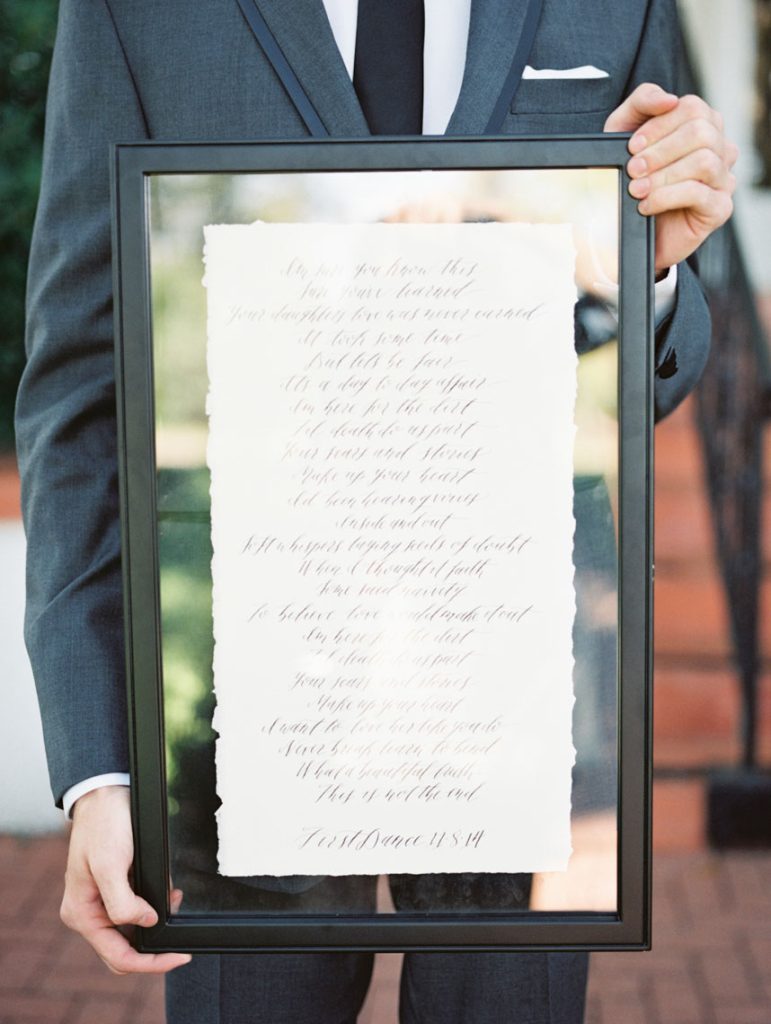 I'm sure you know this
Sure you've learned
Your daughters love was never earned
It took some time
But lets be fair
It's a day to day affair
I'm here for the dirt
Til death do us part
Your scars and stories
Make up your heart
I'd been hearing voices
Inside and out
Soft whispers laying seeds of doubt
When I thought it faith
Some said naivety
To believe love could make it out
I'm here for the dirt
Til death do us part
Your scars and stories
Make up your heart
I want to love her like you do
Never break learn to bend
What a beautiful truth
This is not the end
First Dance 11·8·14